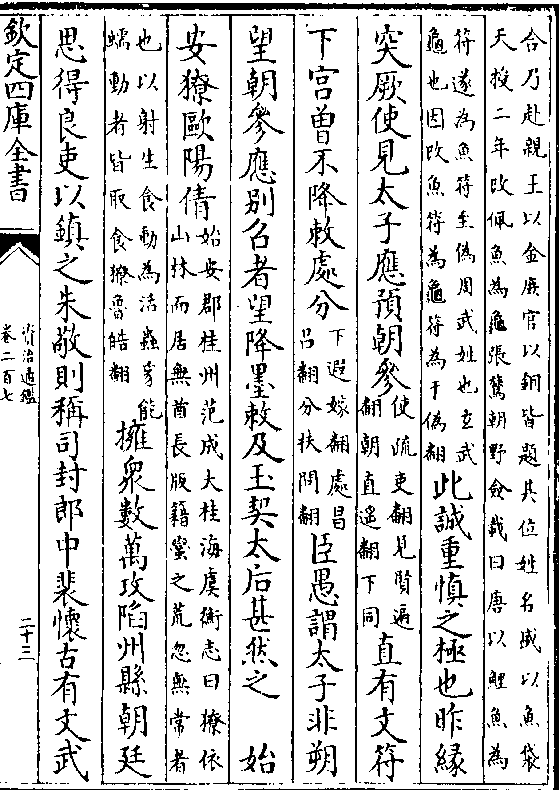 合乃赴親王以金庶官以銅皆題其位姓名盛以魚袋
天授二年改佩魚為龜張鷟朝野僉載曰唐以鯉魚為
符遂為魚符至偽周武姓也玄武
龜也因改魚符為龜符為于偽翻
此誠重慎之極也昨緣
突厥使見太子應預朝參
使疏吏翻見賢遍
翻朝直遥翻下同
直有文符
下宫曾不降敕處分
下遐嫁翻處昌
吕翻分扶問翻
臣愚謂太子非朔
望朝參應别召者望降墨敕及玉契太后甚然之 始
安獠歐陽倩
始安郡桂州范成大桂海虞衡志曰獠依
山林而居無酋長版籍蠻之荒忽無常者
也以射生食動為活蟲豸能
蠕動者皆取食獠魯皓翻
擁衆數萬攻陷州縣朝廷
思得良吏以鎮之朱敬則稱司封郎中裴懷古有文武
欽定四庫全書
資治通鑑
卷二百七
二十三